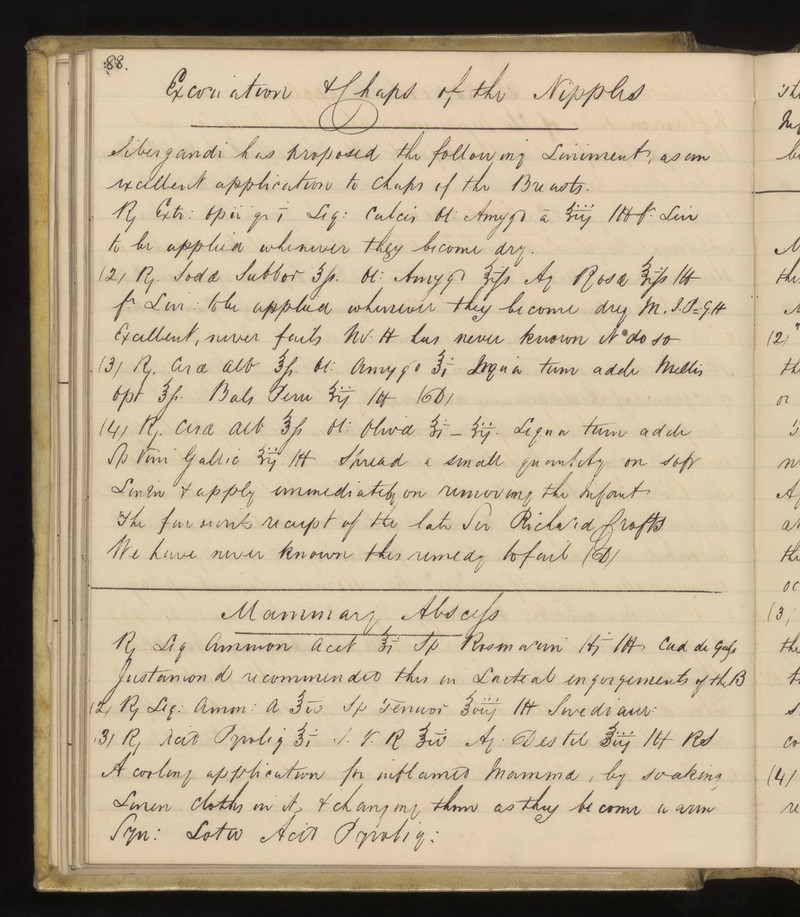 88.
Excoriation & Chaps of the Nipples
Sibergandi has proposed the following Liniment, as an
excellent application to Chaps of the Breasts.
℞ Extr: Opii gr i Liq: Calcis Ol: Amygd ā ʒiij M f. Lin
to be applied whenever they become dry.
(2) ℞. Soda Subbor ʒſs. Ol: Amygd Aq Rosa M
f. Lin: to be applied whenever they become dry M.
Excellent, never fails Mr. H has never known it do so
(3) ℞. Cira Alb ℥ſs. Ol: Amygd ℥i Liqua tum adde Mellis
opt ℥ſs. Bals Peru M (D)
(4) ℞. Cira Alb ℥ſs Ol: Oliva ℥i – ℥ij. Liqua tum adde
Sp Vini Gallic M Spread a small quantity on soft
Linen & apply immediately on removing the Infant
The favourite receipt of the late Sir Richard Crofts
We have never known this remedy to fail (D)
Mammary Abscess
℞ Liq Ammon Acet ℥i Sp Rosmarini M
Justamond recommended this in Lacteal engorgements of the B
(2) ℞ Liq: Amon: A ℥iv Sp Tenuior M Swediaur:
(3) ℞ Acid Pyrolig ℥i S. V. R ℥iv Aq: Destil M
A cooling application for inflamed Mamma, by soaking
Linen cloths in it, & changing them as they become warm
Syn: Lotio Acid Pyrolig:
(2)
th
or
th
(3)
th
co
(4)